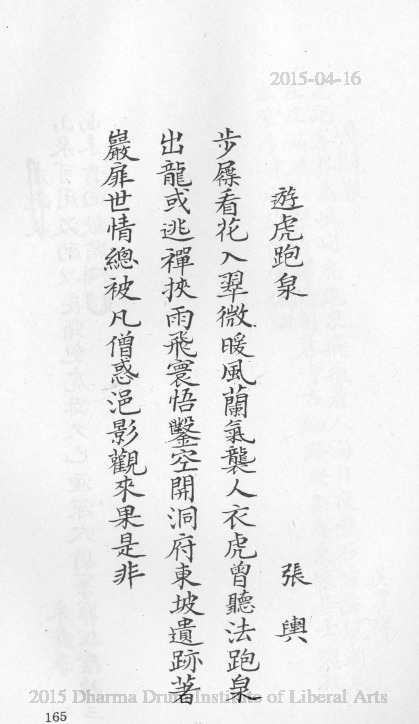 2015-04-16
遊虎跑泉　張輿
步屧看花入翠微暖風蘭氣襲人衣虎曾聽法跑泉
出龍或逃禪挾雨飛寰悟鑿空開洞府東坡遺跡著
巖扉世情總被凡僧惑浥影觀來果是非
2015 Dharma Drum Institute of Liberal Arts
165